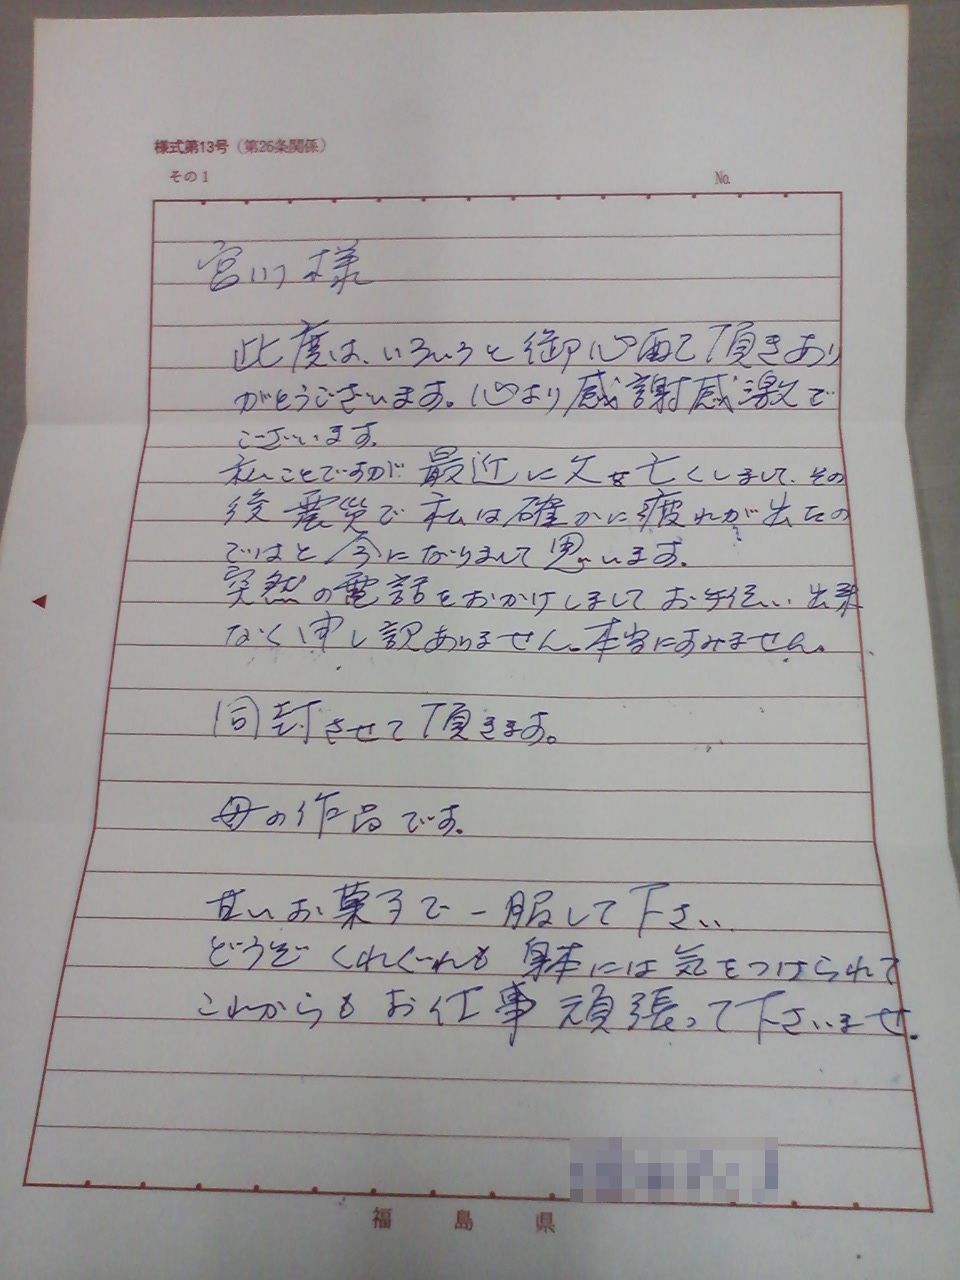 様式第13号（第26条関係）
その1
No.
宮川様
此度は、いろいろと御心配頂きあり
がとうございます。心より感謝感激で
ございます。
私ことですが最近に父を亡くしまして、その
後震災で私は確かに疲れが出たの
ではと今になりまして思います。
突然の電話をおかけしましてお手伝い出来
なく申し訳ありません。本当にすみません。
同封させて頂きます。
母の作品です。
甘いお菓子で一服して下さい。
どうぞくれぐれも身体には気をつけられて
これからもお仕事頑張って下さいませ。
福島県